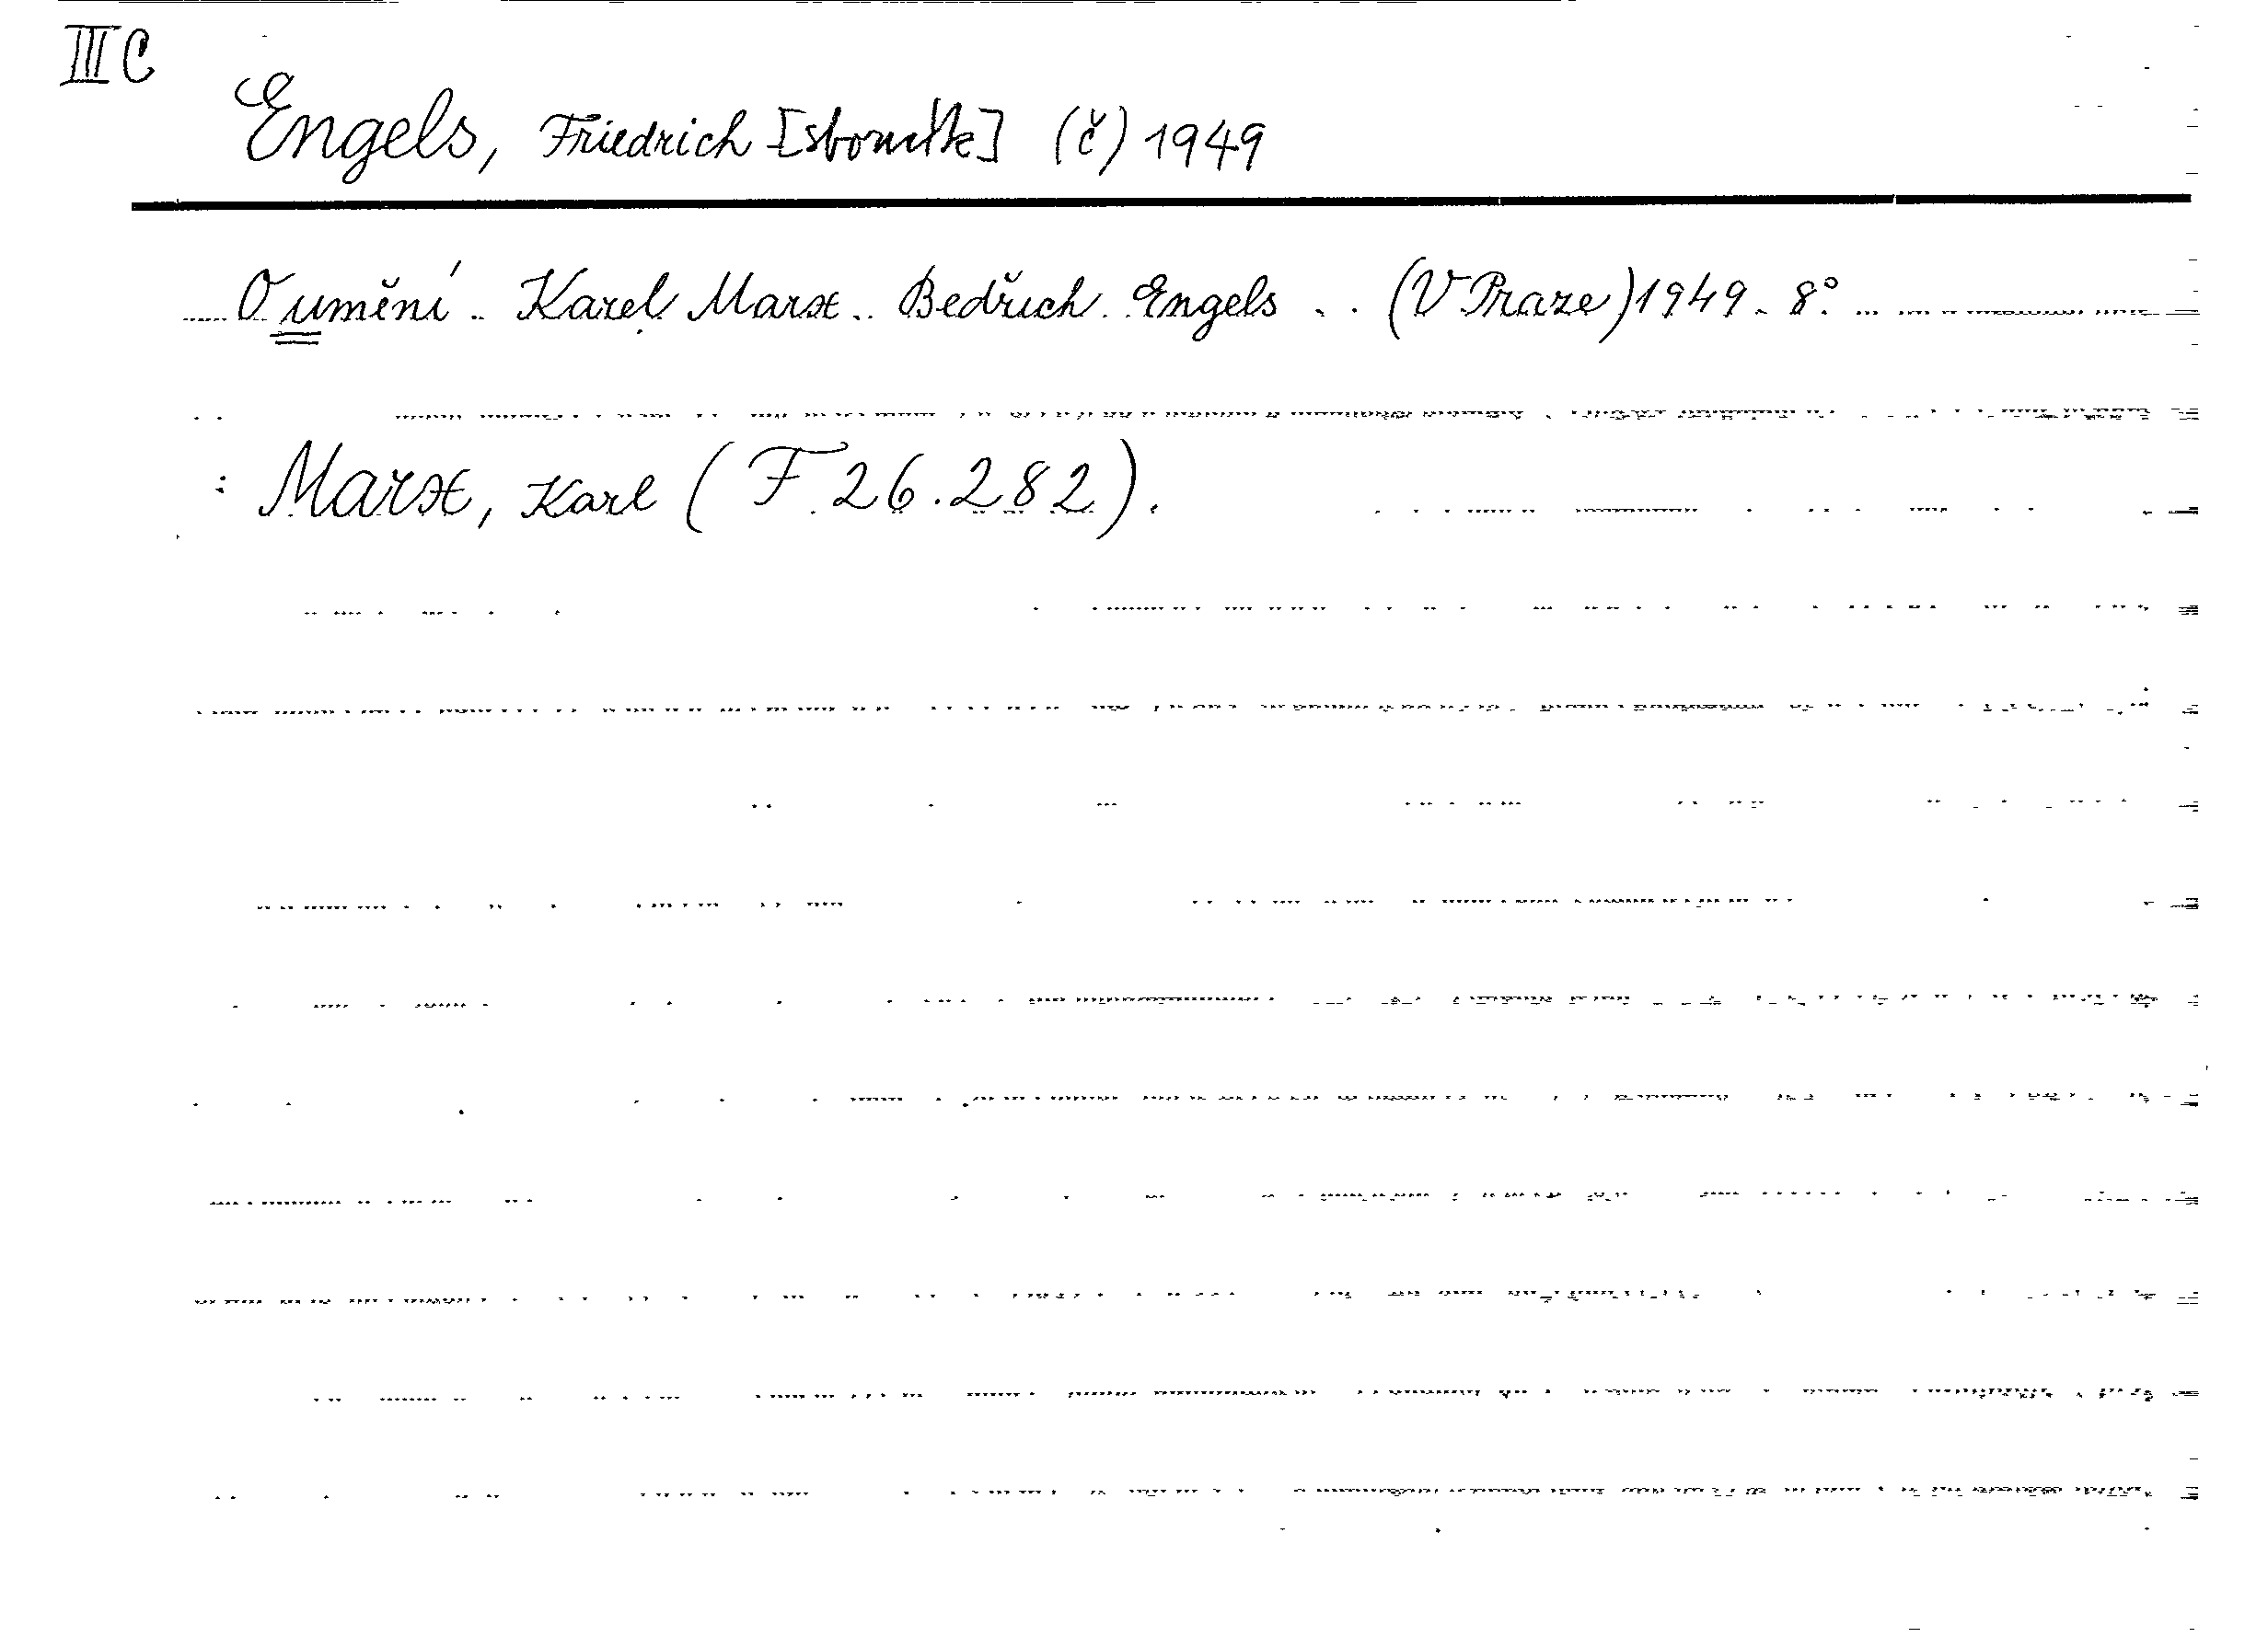 III C
Engels, Friedrich [sborník] (č) 1949
O umění. Karel Marx. Bedřich Engels.. (V Praze) 1949. 8°.
: Marx, Karl (F 26.282).